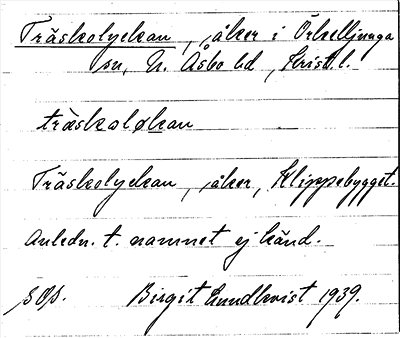 Träskolyckan, åker i Örkelljunga
sn, N. Åsbo hd, Krist. l.
träskoløkan
Träskolyckan, åker, Klippebygget.
Anledn. t. namnet ej känd.
s. 08.
Birgit Lundkvist 1939.